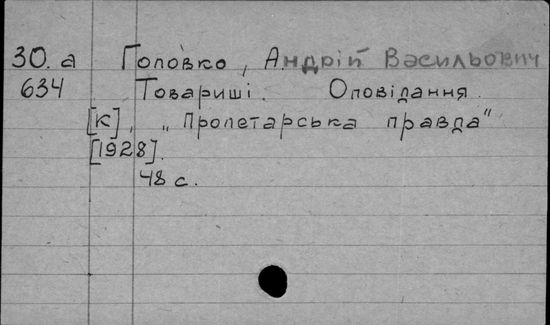 30. а Головко, Андрій Васильович
634 Товариші. Оповідання.
[К], „Пролетарська правда"
[1928].
48 с.